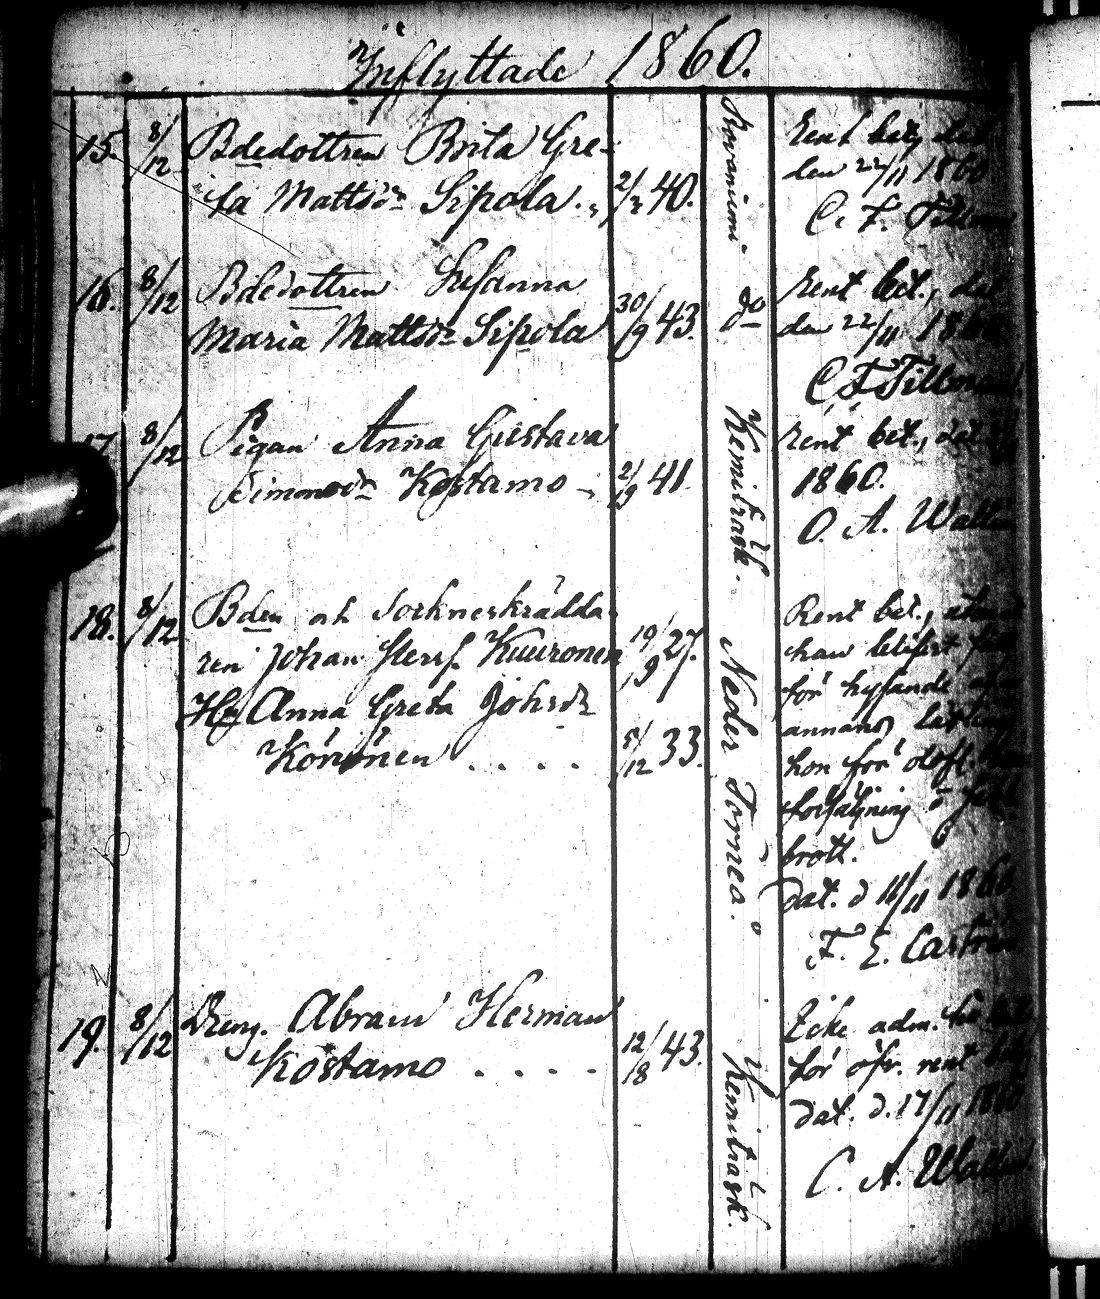 Inflyttade 1860.
15. 8/12 Bdedottren Brita Gre-
ta Mattsdr Sipola. 2/2 40. Rovaniemi. Rent bety dat
den 22/11 1860
C. F. Tillman
16. 8/12 Bdedottren Susanna
Maria Mattsdr Sipola 30/9 43. do Rent bet., dat
den 22/11 1860
C F Tillman
17. 8/12 Pigan Anna Gustava
Simonsdr Kostamo 2/9 41. Kemiträsk. Rent bet., dat.
1860.
O. A. Wallin
18. 8/12 Bden och sockneskrädda-
ren Johan Henr. Kuuronen 19/9 27. Neder Torneå. Rent bet., utom
Hu Anna Greta Johsdr
Könönen . . . . 5/12 33.
han
för
annans
hon för olofl.
försäljning o
brott.
dat. d 11/11 1860
F. E. Castrén
19. 8/12 Dreng. Abram Herman
Kostamo . . . . 12/8 43. Kemiträsk. Icke adm.
för öfr. rent bety
dat. d. 17/11 1860
C. A. Wallin